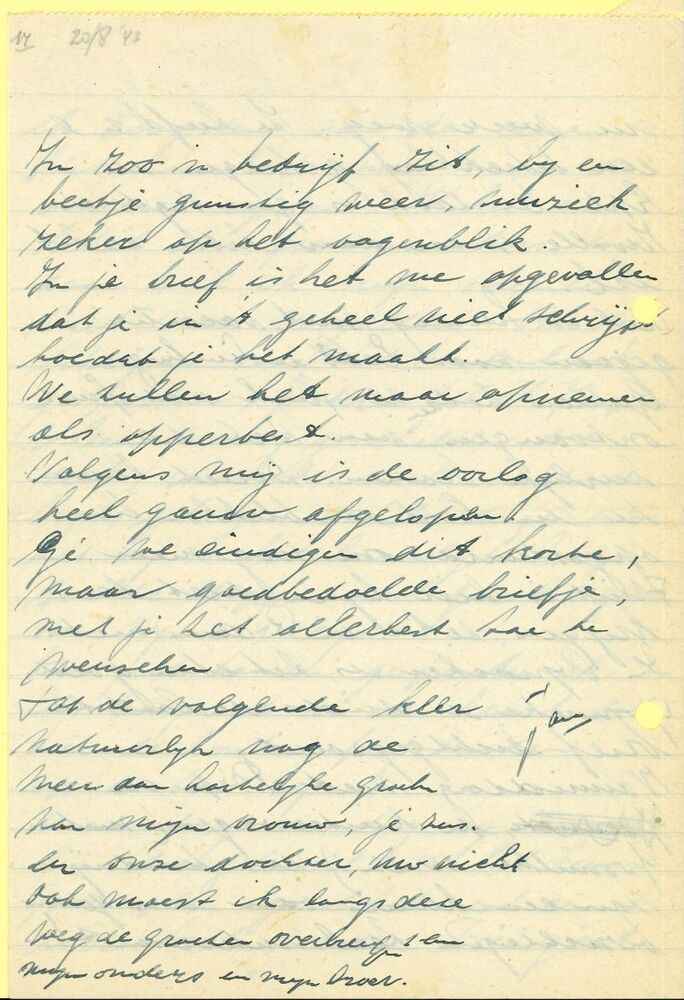 17 20/8 '43
En zoo in bedrijf zit, by en
beetje gunstig weer, muziek
zeker op het oogenblik.
In je brief is het me opgevallen
dat je in 't geheel niet schrijft
hoedat je het maakt.
We zullen het maar opnemen
als opperbest.
Volgens mij is de oorlog
heel gauw afgelopen.
we eindigen dit korte,
maar goedbedoelde briefje,
met je het allerbest toe te
wenschen
Tot de volgende keer
natuurlyk nog de
meer dan hartelyke groeten
van mijn vrouw, je zus.
en onze dochter, uw nicht
Ook moest ik langs deze
weg de groeten overbrengen van
mijn ouders en mijn broer.